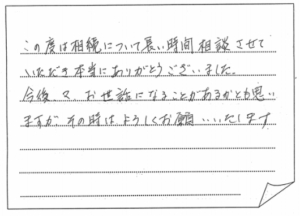 この度は相続について長い時間相談させて
いただき本当にありがとうございました。
今後、又、お世話になることがあるかとも思い
ますが、その時はよろしくお願いいたします